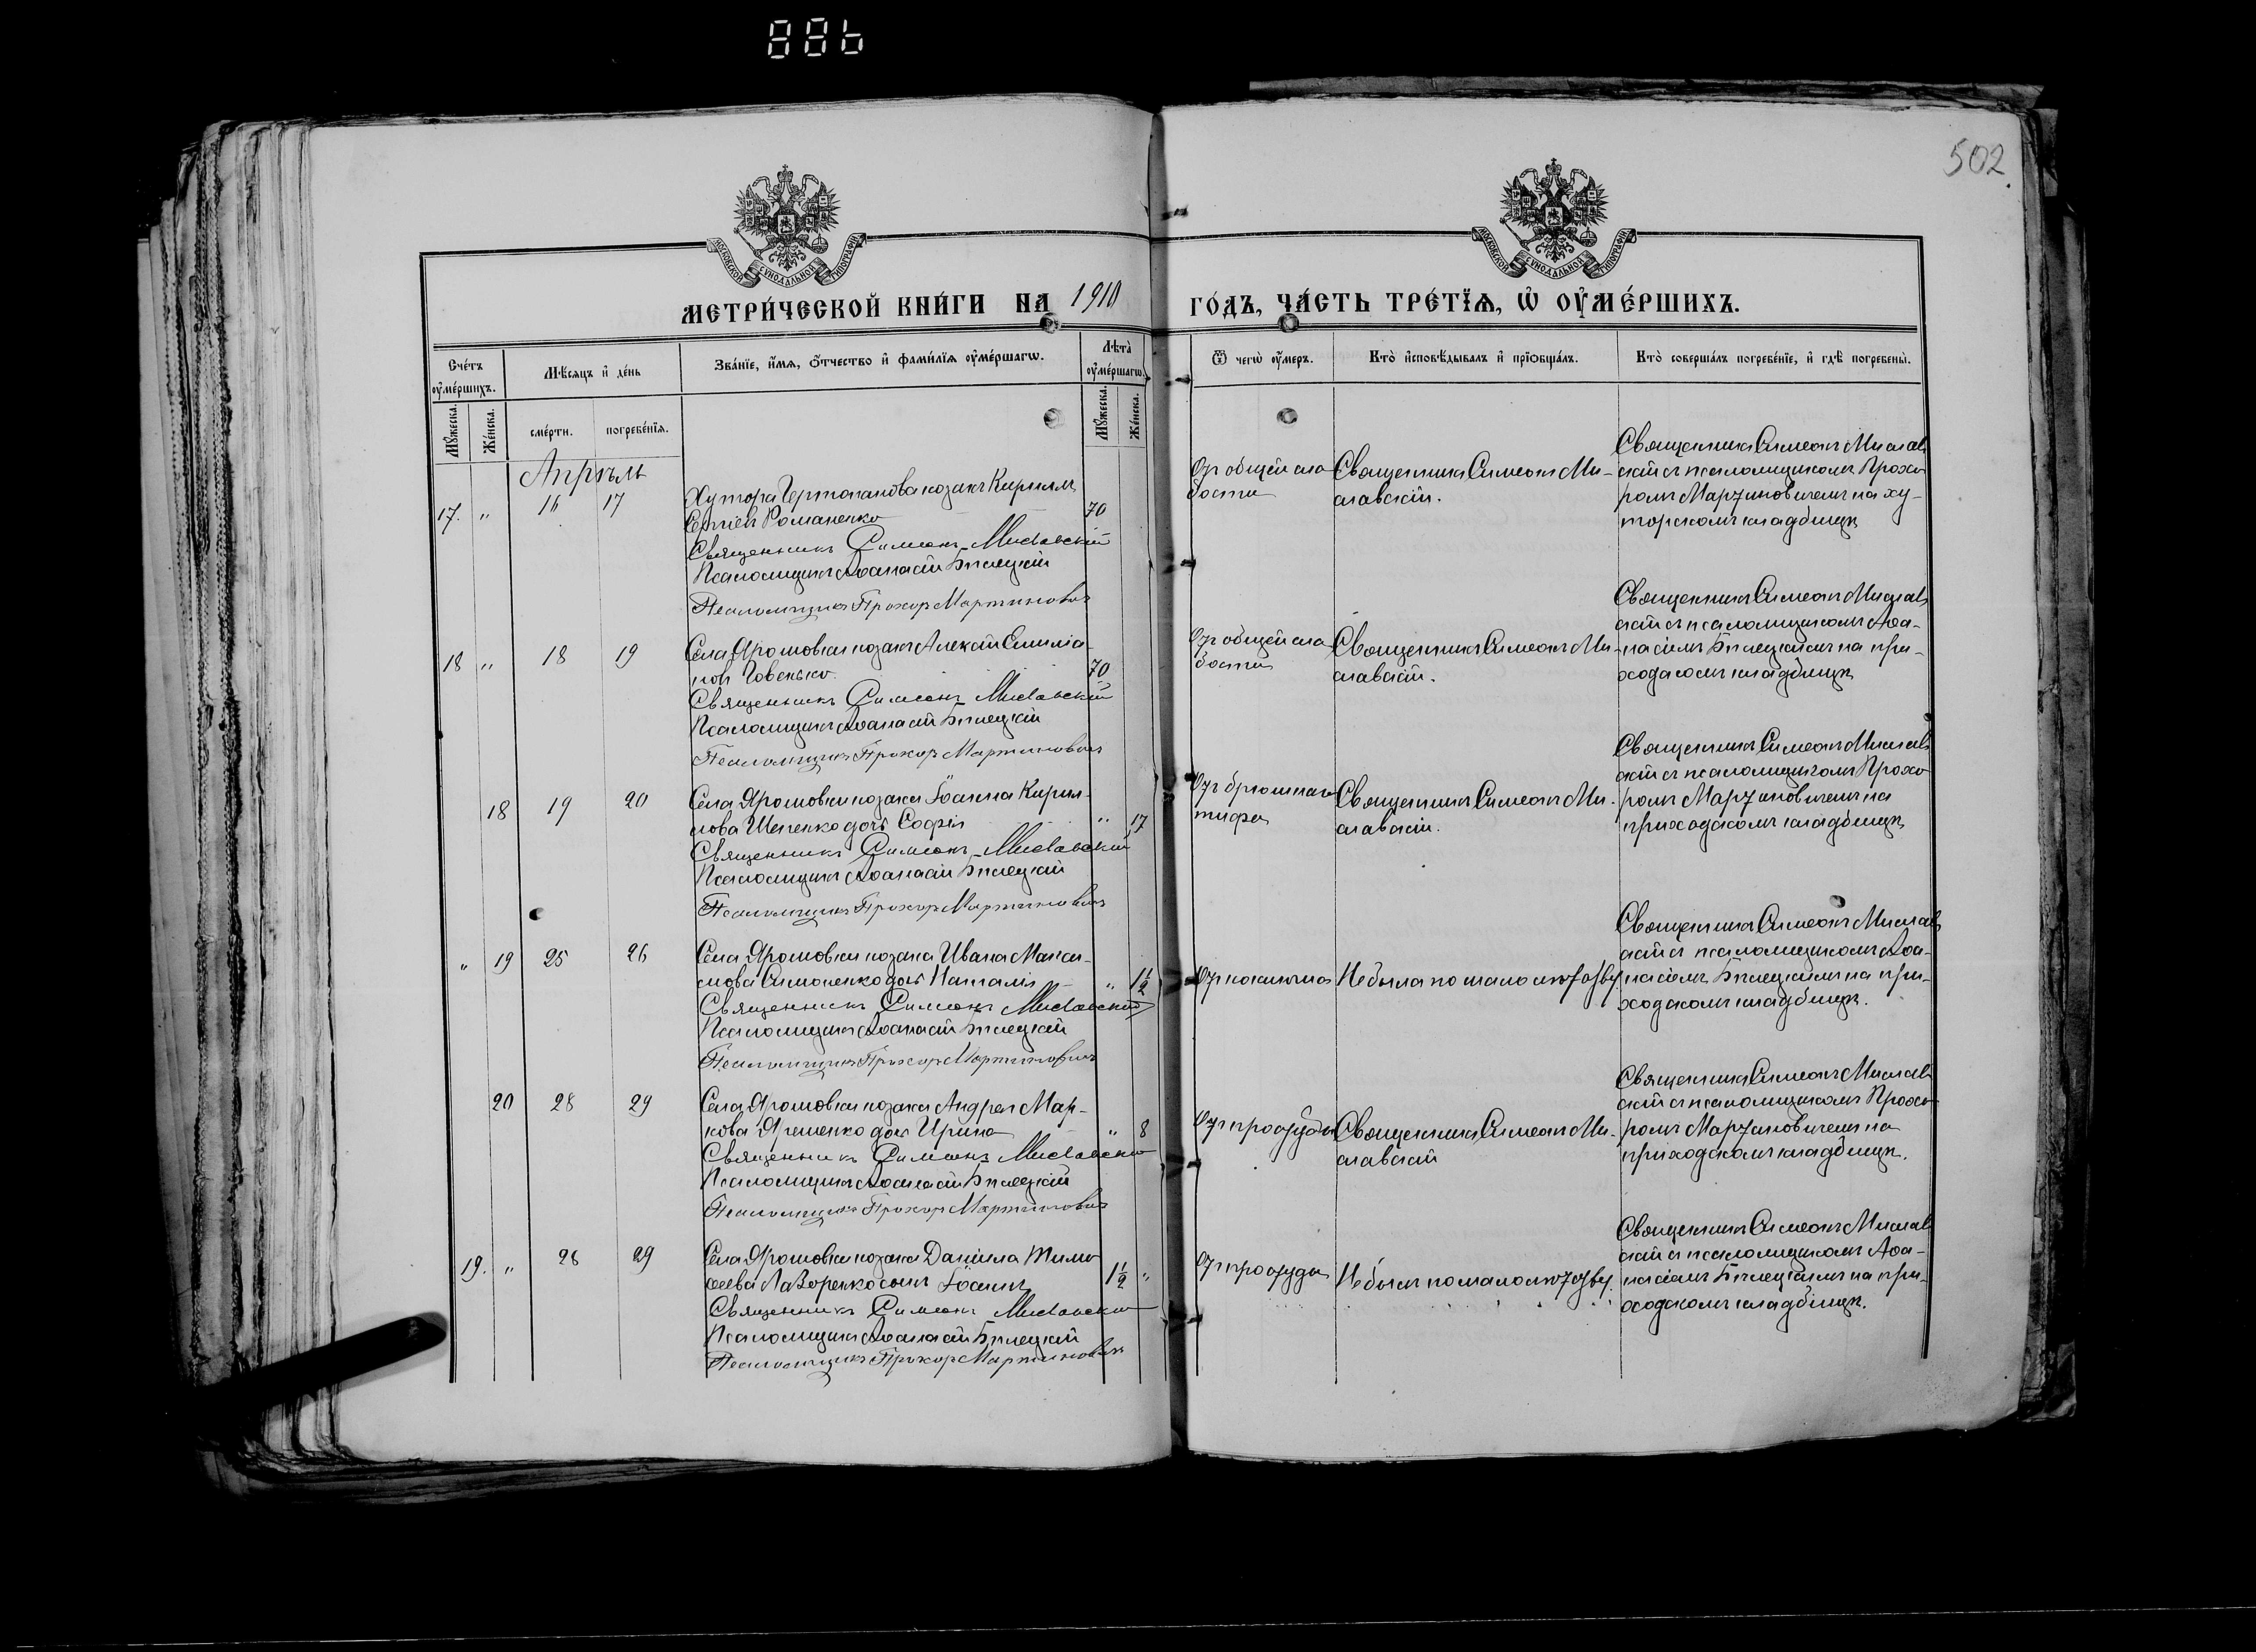 886
502
МОСКОВСКОЙ СУНОДАЛЬНОЙ ТИПОГРАФІИ
МОСКОВСКОЙ СУНОДАЛЬНОЙ ТИПОГРАФІИ
МЕТРИ́ЧЕСКОЙ КНИ́ГИ НА 1910 ГО́ДЪ, ЧА́СТЬ ТРЕ́ТІѦ, Ѡ҆ ОУ҆МЕ́РШИХЪ.
Сче́тъ оу҆ме́ршихъ.
Мѣ́сяцъ и҆ де́нь
Зва́нїе, и҆́мѧ, ѻ҆́тчество и҆ фами́лїѧ оу҆ме́ршагѡ.
Лѣ́та оу҆ме́ршагѡ.
Ѿ чегѡ̀ оу҆́меръ.
Кто̀ и҆сповѣ́дывалъ и҆ прїѡбща́лъ.
Кто̀ соверша́лъ погребе́нїе, и҆ гдѣ̀ погребены̀.
Мꙋ́жеска.
Же́нска.
сме́рти.
погребе́нїѧ.
Мꙋ́жеска.
Же́нска.
Апрѣль
17. „ 16 17
Хутора козакъ Кириллъ
Романенко 70
Священникъ Симеонъ Миславскій
Псаломщикъ Аѳанасій Бѣлецкій
Псаломщикъ Прохоръ Мартиновичъ
Отъ общей сла-
бости
Священникъ Симеонъ Ми-
славскій.
Священникъ Симеонъ Мислав
скій съ псаломщикомъ Прохо
ромъ Мартиновичемъ на ху-
торскомъ кладбищѣ
18 „ 18 19
Села Ярошовки козакъ Алексій Емиліа-
новъ 70
Священникъ Симеонъ Миславскій
Псаломщикъ Аѳанасій Бѣлецкій
Псаломщикъ Прохоръ Мартиновичъ
Отъ общей сла
бости
Священникъ Симеонъ Ми-
славскій.
Священникъ Симеонъ Мислав
скій съ псаломщикомъ Аѳа-
насіемъ Бѣлецкимъ на при-
ходскомъ кладбищѣ
18 19 20
Села Ярошовки козака Іоанна Кирил-
лова дочь Софія „ 17
Священникъ Симеонъ Миславскій
Псаломщикъ Аѳанасій Бѣлецкій
Псаломщикъ Прохоръ Мартиновичъ
Отъ брюшнаго
тифа
Священникъ Симеонъ Ми-
славскій.
Священникъ Симеонъ Мислав
скій съ псаломщикомъ Прохо
ромъ Мартиновичемъ на
приходскомъ кладбищѣ
„ 19 25 26
Села Ярошовки козака Ивана Макси-
мова Симоненко дочь Наталія „ 1½
Священникъ Симеонъ Миславскій
Псаломщикъ Аѳанасій Бѣлецкій
Псаломщикъ Прохоръ Мартиновичъ
Отъ коклюша
Не была по малолѣтству
Священникъ Симеонъ Мислав
скій съ псаломщикомъ Аѳа-
насіемъ Бѣлецкимъ на при-
ходскомъ кладбищѣ.
20 28 29
Села Ярошовки козака Андрея Мар-
кова Яременко дочь Ирина „ 8
Священникъ Симеонъ Миславскій
Псаломщикъ Аѳанасій Бѣлецкій
Псаломщикъ Прохоръ Мартиновичъ
Отъ простуды
Священникъ Симеонъ Ми-
славскій
Священникъ Симеонъ Мислав
скій съ псаломщикомъ Прохо
ромъ Мартиновичемъ на
приходскомъ кладбищѣ.
19. „ 28 29
Села Ярошовки козака Даніила Тимо
ѳеева Лазоренко сынъ Іоаннъ 1½ „
Священникъ Симеонъ Миславскій
Псаломщикъ Аѳанасій Бѣлецкій
Псаломщикъ Прохоръ Мартиновичъ
Отъ простуды
Не былъ по малолѣтству.
Священникъ Симеонъ Мислав
скій съ псаломщикомъ Аѳа-
насіемъ Бѣлецкимъ на при-
ходскомъ кладбищѣ.